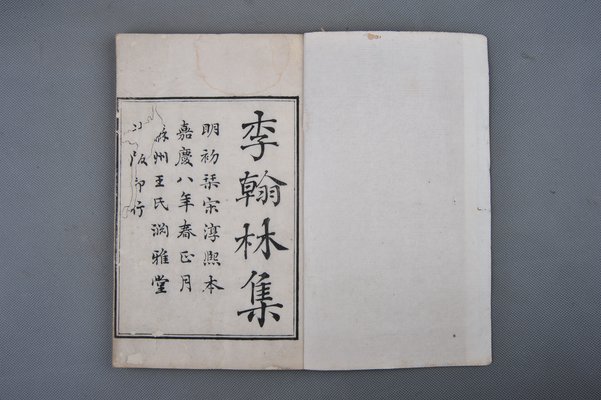 李翰林集
明初栞宋淳熙本
嘉慶八年春正月
州王氏淵雅堂
版印行